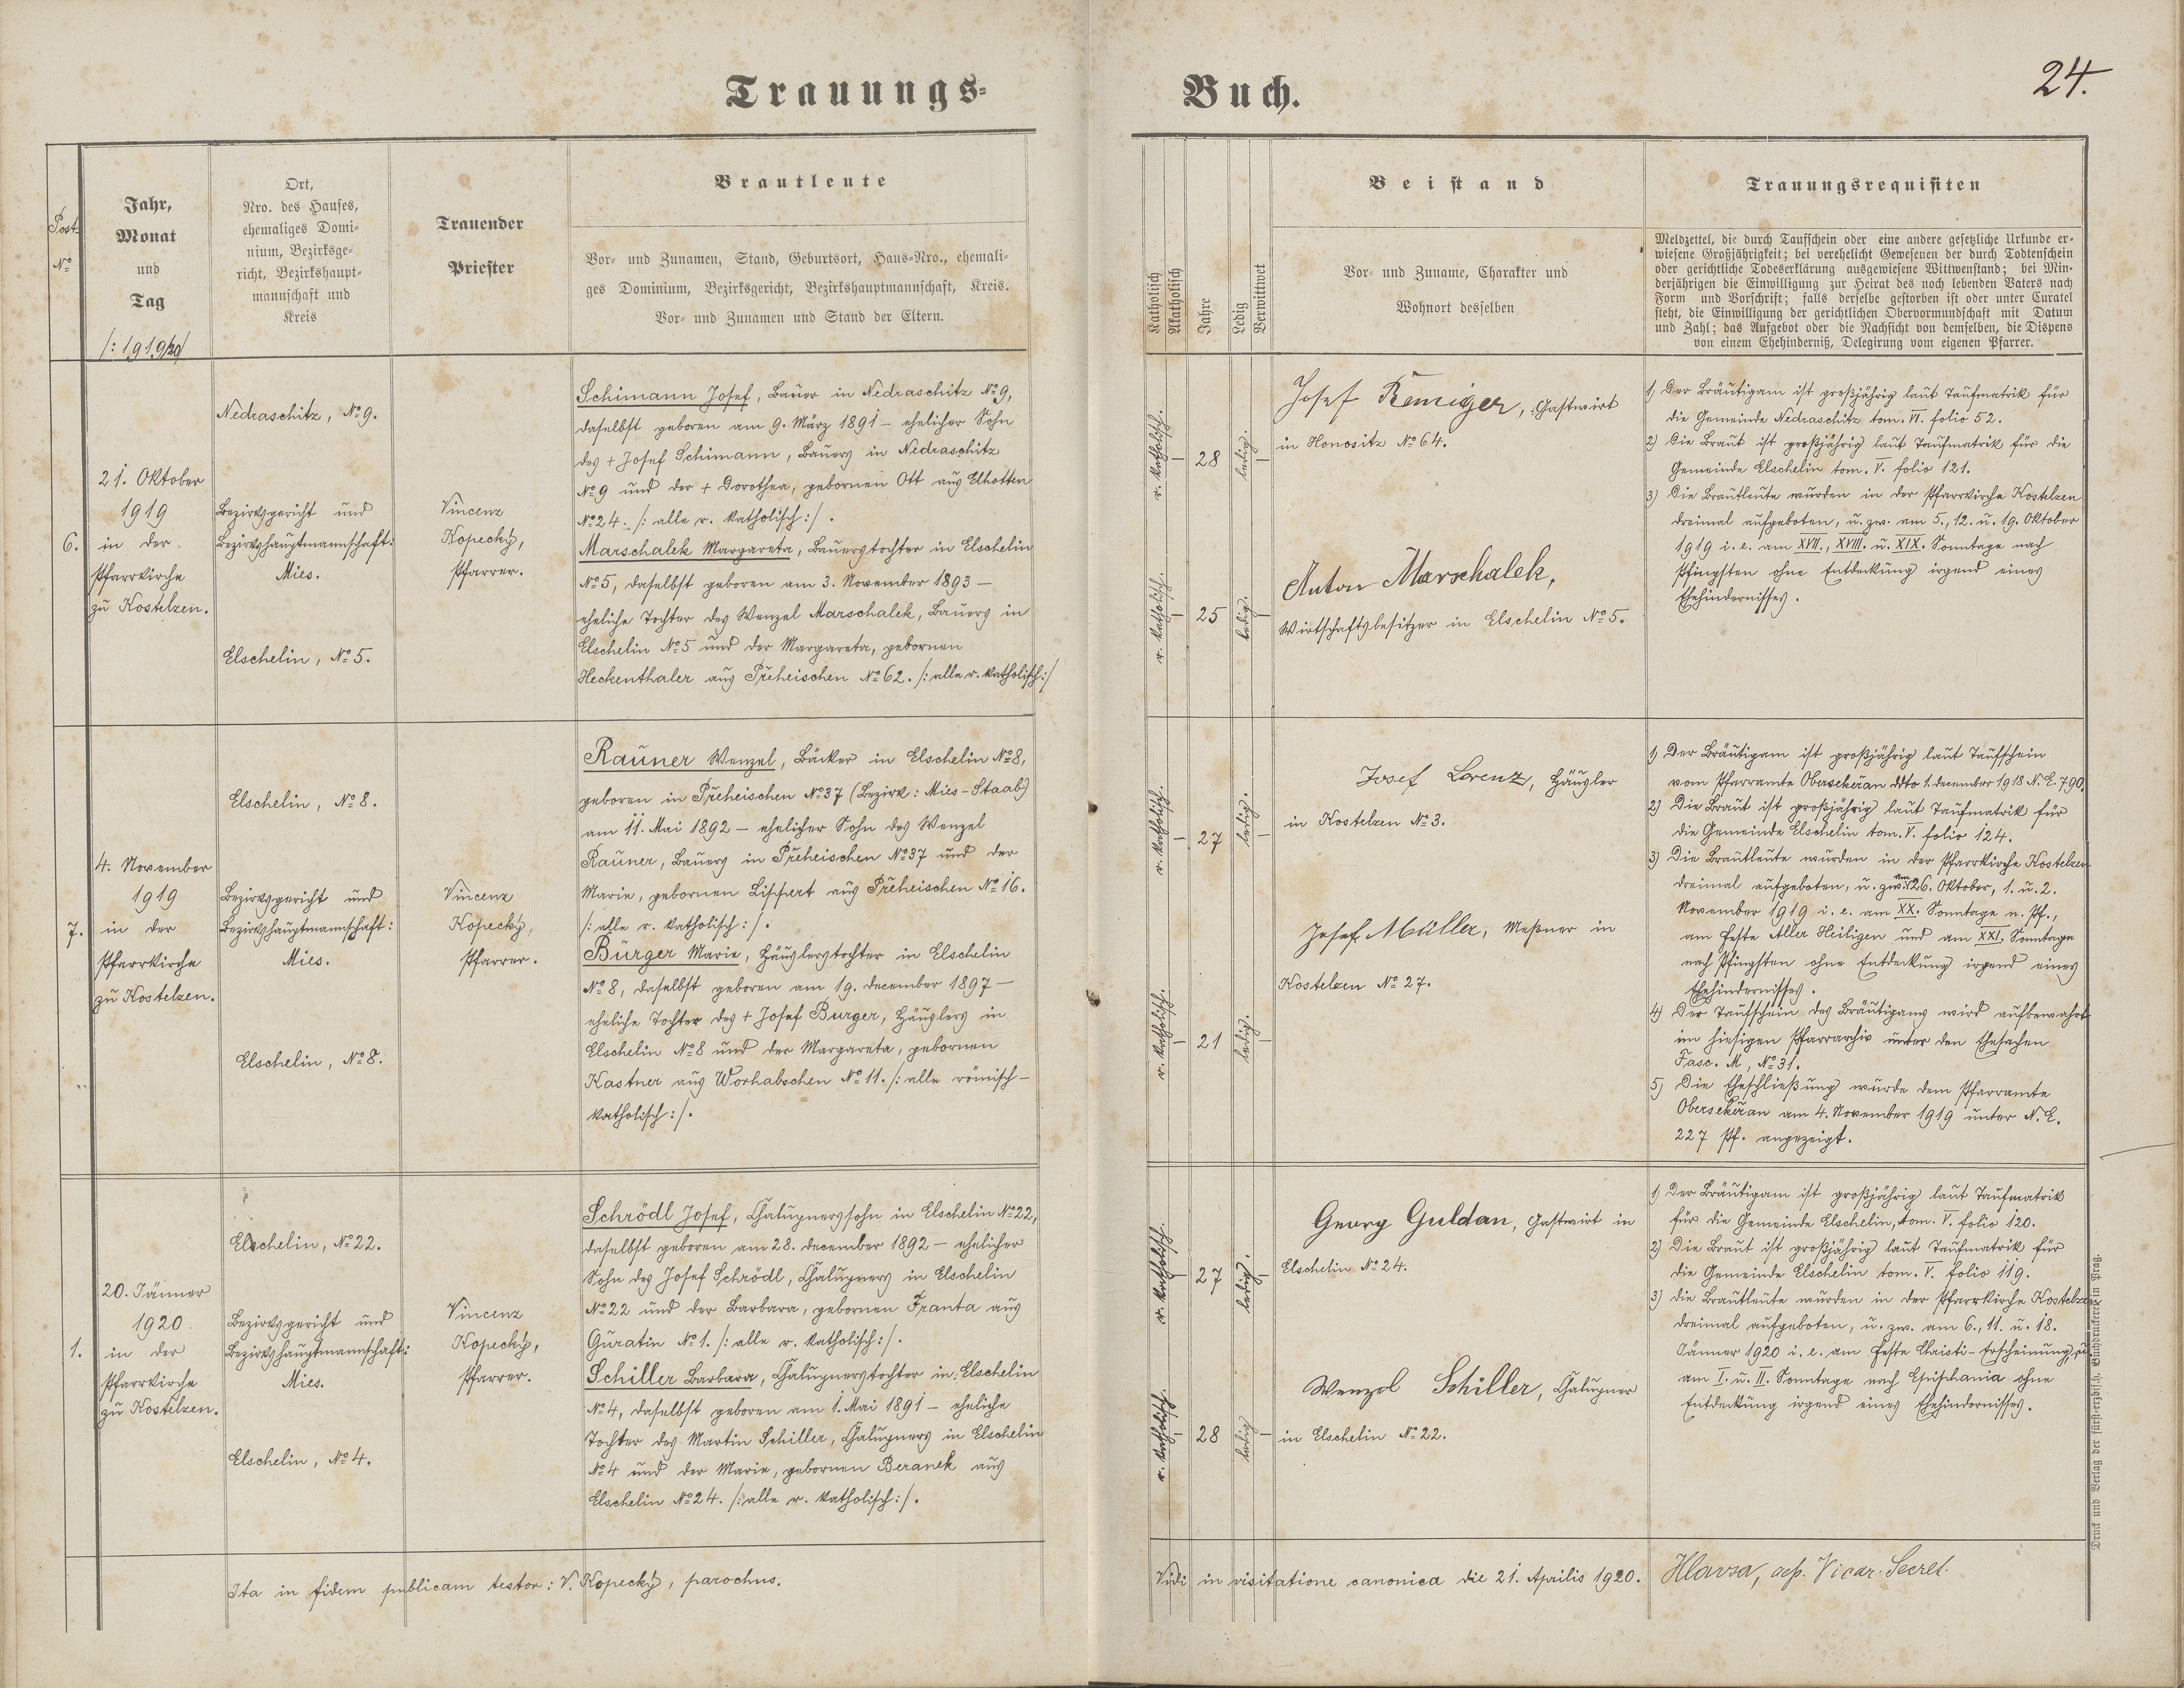 Trauungs-
Buch.
24.
Post-
No
Jahr,
Monat
und
Tag
/: 1919/20/
Ort,
Nro. des Hauses,
ehemaliges Domi-
nium, Bezirksge-
richt, Bezirkshaupt-
mannschaft und
Kreis
Trauender
Priester
Brautleute
Vor- und Zunamen, Stand, Geburtsort, Haus-Nro., ehemali-
ges Dominium, Bezirksgericht, Bezirkshauptmannschaft, Kreis.
Vor- und Zunamen und Stand der Eltern.
Katholisch
Akatholisch
Jahre
Ledig
Verwittwet
Beistand
Vor- und Zuname, Charakter und
Wohnort desselben
Trauungsrequisiten
Meldzettel, die durch Taufschein oder eine andere gesetzliche Urkunde er-
wiesene Großjährigkeit; bei verehelicht Gewesenen der durch Todtenschein
oder gerichtliche Todeserklärung ausgewiesene Wittwenstand; bei Min-
derjährigen die Einwilligung zur Heirat des noch lebenden Vaters nach
Form und Vorschrift; falls derselbe gestorben ist oder unter Curatel
steht, die Einwilligung der gerichtlichen Obervormundschaft mit Datum
und Zahl; das Aufgebot oder die Nachsicht von demselben, die Dispens
von einem Ehehinderniß, Delegirung vom eigenen Pfarrer.
6.
21. Oktober
1919
in der
Pfarrkirche
zu Kostelzen.
Nedraschitz, No 9.
Bezirksgericht und
Bezirkshauptmannschaft:
Mies.
Elschelin, No 5.
Vincenz
Kopecký,
Pfarrer.
Schimann Josef, Bauer in Nedraschitz No 9,
daselbst geboren am 9. März 1891 – ehelicher Sohn
des + Josef Schimann, Bauers in Nedraschitz
No 9 und der + Dorothea, gebornen Ott aus Elhotten
No 24. /: alle r. katholisch :/.
Marschalek Margareta, Bauerstochter in Elschelin
No 5, daselbst geboren am 3. November 1893 –
eheliche Tochter des Wenzel Marschalek, Bauers in
Elschelin No 5 und der Margareta, gebornen
Heckenthaler aus Přeheischen No 62. /: alle r. katholisch :/
r. katholisch.
28
ledig.
r. katholisch.
25
ledig.
Josef Remiger, Gastwirt
in Honositz No 64.
Anton Marschalek,
Wirtschaftsbesitzer in Elschelin No 5.
1) Der Bräutigam ist großjährig laut Taufmatrik für
die Gemeinde Nedraschitz tom. VI. folio 52.
2) Die Braut ist großjährig laut Taufmatrik für die
Gemeinde Elschelin tom. V. folio 121.
3) Die Brautleute wurden in der Pfarrkirche Kostelzen
dreimal aufgeboten, u. zw. am 5., 12. u. 19. Oktober
1919 i. e. am XVII., XVIII. u. XIX. Sonntage nach
Pfingsten ohne Entdeckung irgend eines
Ehehindernisses.
7.
4. November
1919
in der
Pfarrkirche
zu Kostelzen.
Elschelin, No 8.
Bezirksgericht und
Bezirkshauptmannschaft:
Mies.
Elschelin, No 8.
Vincenz
Kopecký,
Pfarrer.
Rauner Wenzel, Bäcker in Elschelin No 8,
geboren in Přeheischen No 37 (Bezirk: Mies-Staab)
am 11. Mai 1892 – ehelicher Sohn des Wenzel
Rauner, Bauers in Přeheischen No 37 und der
Marie, gebornen Lippert aus Přeheischen No 16.
/: alle r. katholisch :/.
Burger Marie, Häuslerstochter in Elschelin
No 8, daselbst geboren am 19. December 1897 –
eheliche Tochter des + Josef Burger, Häuslers in
Elschelin No 8 und der Margareta, gebornen
Kastner aus Worhabschen No 11. /: alle römisch-
katholisch :/.
r. katholisch.
27
ledig.
r. katholisch.
21
ledig.
Josef Lorenz, Häusler
in Kostelzen No 3.
Josef Müller, Meßner in
Kostelzen No 27.
1) Der Bräutigam ist großjährig laut Taufschein
vom Pfarramte Obersekeřan ddto 1. December 1918 N. E. 790.
2) Die Braut ist großjährig laut Taufmatrik für
die Gemeinde Elschelin tom. V. folio 124.
3) Die Brautleute wurden in der Pfarrkirche Kostelzen
dreimal aufgeboten, u. zw. am 26. Oktober, 1. u. 2.
November 1919 i. e. am XX. Sonntage n. Pf.,
am Feste Aller Heiligen und am XXI. Sonntage
nach Pfingsten ohne Entdeckung irgend eines
Ehehindernisses.
4) Der Taufschein des Bräutigams wird aufbewahrt
im hiesigen Pfarrarchiv unter den Ehesachen
Fasc. M, No 31.
5) Die Eheschließung wurde dem Pfarramte
Obersekeřan am 4. November 1919 unter N. E.
227 Pf. angezeigt.
1.
20. Jänner
1920
in der
Pfarrkirche
zu Kostelzen.
Elschelin, No 22.
Bezirksgericht und
Bezirkshauptmannschaft:
Mies.
Elschelin, No 4.
Vincenz
Kopecký,
Pfarrer.
Schrödl Josef, Chalupnerssohn in Elschelin No 22,
daselbst geboren am 28. December 1892 – ehelicher
Sohn des Josef Schrödl, Chalupners in Elschelin
No 22 und der Barbara, gebornen Franta aus
Guratin No 1. /: alle r. katholisch :/.
Schiller Barbara, Chalupnerstochter in Elschelin
No 4, daselbst geboren am 1. Mai 1891 – eheliche
Tochter des Martin Schiller, Chalupners in Elschelin
No 4 und der Marie, gebornen Beranek aus
Elschelin No 24. /: alle r. katholisch :/.
r. katholisch.
27
ledig.
r. katholisch.
28
ledig
Georg Guldan, Gastwirt in
Elschelin No 24.
Wenzel Schiller, Chalupner
in Elschelin No 22.
1) Der Bräutigam ist großjährig laut Taufmatrik
für die Gemeinde Elschelin, tom. V. folio 120.
2) Die Braut ist großjährig laut Taufmatrik für
die Gemeinde Elschelin tom. V. folio 119.
3) Die Brautleute wurden in der Pfarrkirche Kostelzen
dreimal aufgeboten, u. zw. am 6., 11. u. 18.
Jänner 1920 i. e. am Feste Christi-Erscheinung, u.
am I. u. II. Sonntage nach Epiphania ohne
Entdeckung irgend eines Ehehindernisses.
Ita in fidem publicam testor: V. Kopecký, parochus.
Vidi in visitatione canonica die 21. Aprilis 1920.
Vicar. Secret.
Druck und Verlag der fürst-erzbisch. Buchdruckerei in Prag.